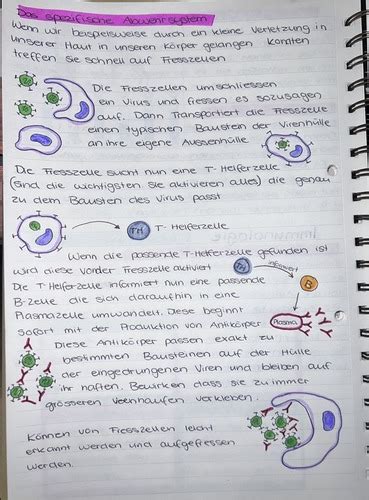 Das spezifische Abwehrsystem
Wenn wir beispielsweise durch ein kleine Verletzung in
unserer Haut in unseren Körper gelangen konnten
treffen sie schnell auf Fresszellen
Die Fresszellen umschliessen
ein Virus und fressen es sozusagen
auf. Dann Transportiert die Fresszelle
einen typischen Baustein der Virenhülle
an ihre eigene Aussenhülle
Die Fresszelle sucht nun eine T-Helferzelle
(sind die wichtigsten sie aktivieren alles) die genau
zu dem Baustein des Virus passt
TH T-Helferzelle
Wenn die passende T-Helferzelle gefunden ist
wird diese von der Fresszelle aktiviert
TH informiert
Die T-Helferzelle informiert nun eine passende
B
B-Zelle die sich daraufhin in eine
Plasmazelle umwandelt. Diese beginnt
sofort mit der Produktion von Antikörper
Plasma
Diese Antikörper passen exakt zu
bestimmten Bausteinen auf der Hülle
der eingedrungenen Viren und bleiben auf
ihr haften. Bewirken dass sie zu immer
grösseren Virenhaufen verkleben.
Können von Fresszellen leicht
erkannt werden und aufgefressen
werden.